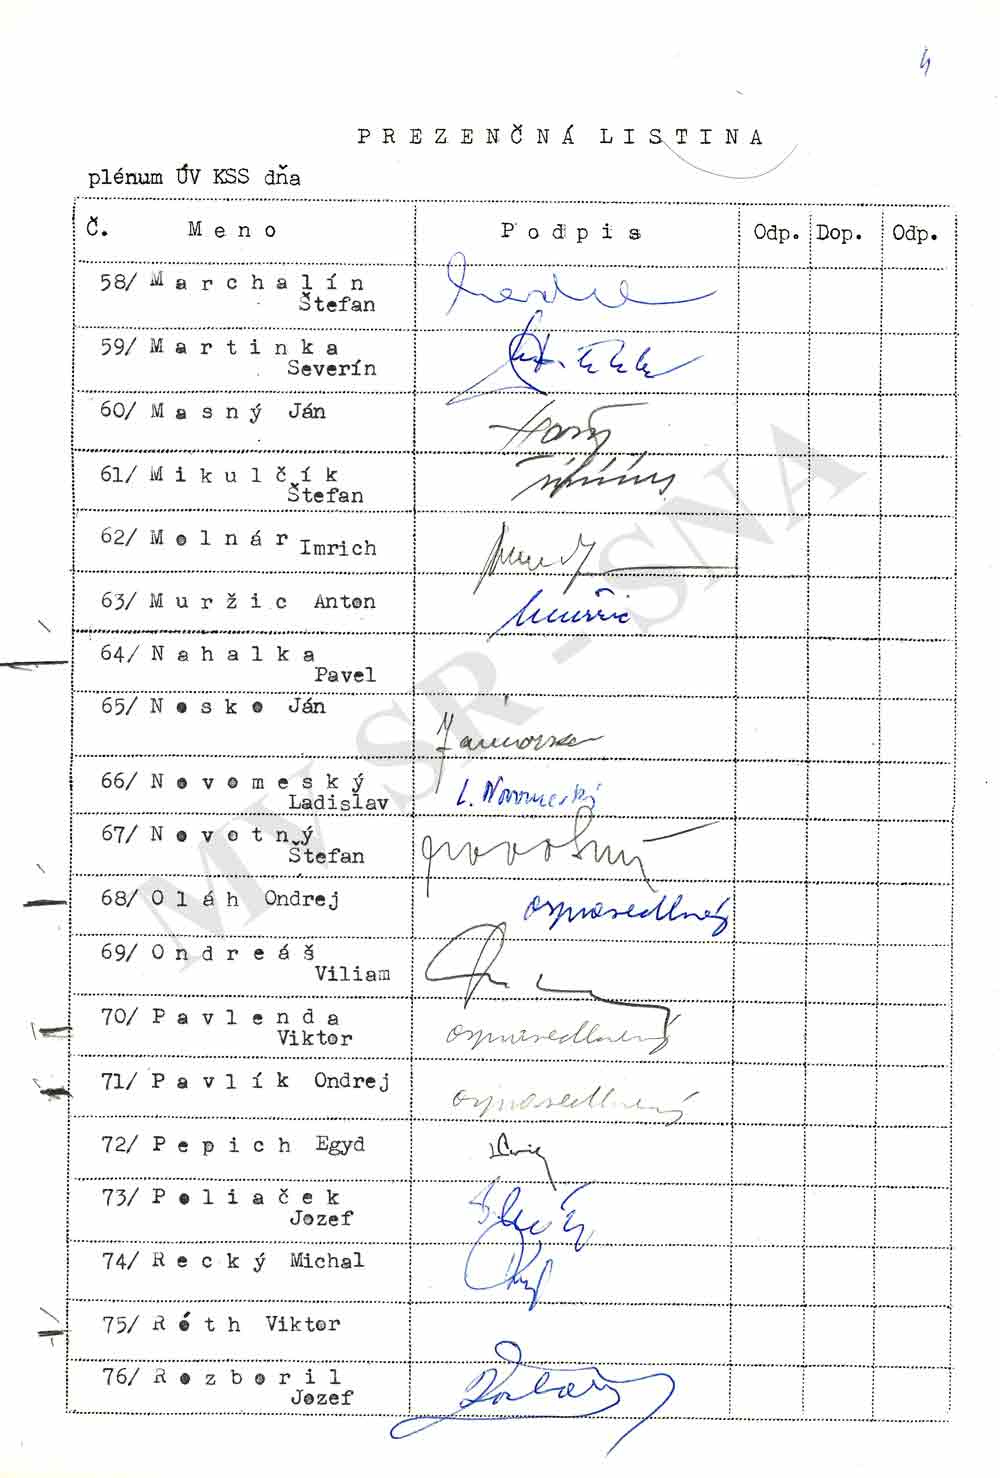 4
PREZENČNÁ LISTINA
plénum ÚV KSS dňa
Č. Meno Podpis Odp. Dop. Odp.
58/ Marchalín
Štefan
59/ Martinka
Severín
60/ Masný Ján
61/ Mikulčík
Štefan
62/ Molnár Imrich
63/ Muržic Anton
64/ Nahalka
Pavel
65/ Nosko Ján
66/ Novomeský
Ladislav L. Novomeský
67/ Novotný
Štefan
68/ Oláh Ondrej ospravedlnený
69/ Ondreáš
Viliam
70/ Pavlenda
Viktor ospravedlnený
71/ Pavlík Ondrej ospravedlnený
72/ Pepich Egyd
73/ Poliaček
Jozef
74/ Recký Michal
75/ Róth Viktor
76/ Rozboril
Jozef
MV SR - SNA